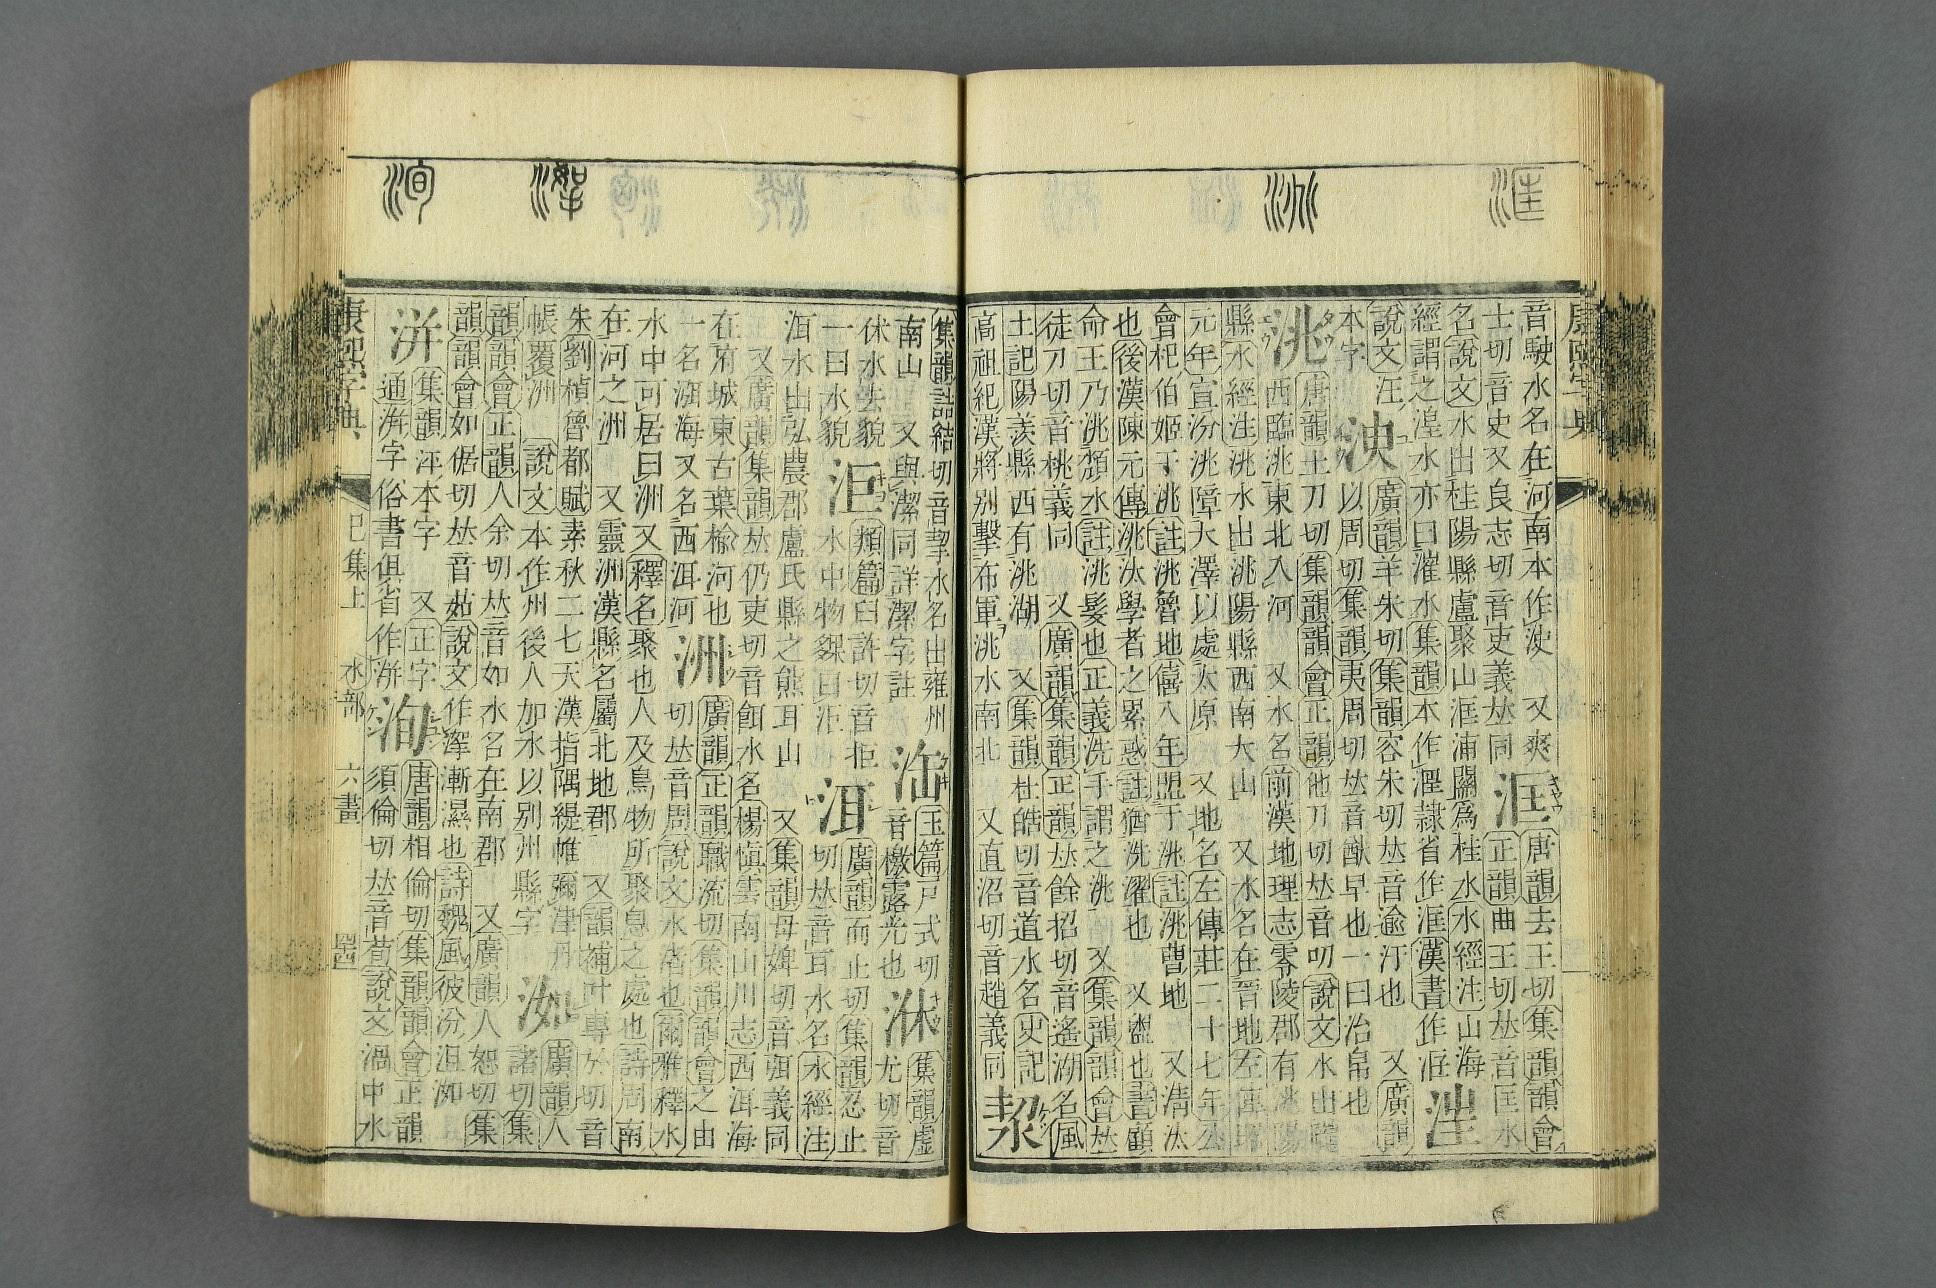 康熙字典
音駛水名在河南本作浾 又爽 洭 唐韻去王切集韻韻會
士切音史又良志切音吏義𠀤同 正韻曲王切𠀤音匡水
名說文水出桂陽縣盧聚山洭浦關爲桂水水經注山海
經謂之湟水亦曰漼水集韻本作湟隷省作洭漢書作洭
說文汪
本字 洟 廣韻羊朱切集韻容朱切𠀤音逾汙也 又廣韻
以周切集韻夷周切𠀤音猷旱也一曰治帛也
洮 唐韻土刀切集韻韻會正韻他刀切𠀤音叨說文水出隴
西臨洮東北入河 又水名前漢地理志零陵郡有洮陽
縣水經注洮水出洮陽縣西南大山 又水名在晉地左
元年宣汾洮障大澤以處太原 又地名左傳莊二十七年公
會杞伯姬于洮註洮魯地僖八年盟于洮註洮曹地 又淸汰
也後漢陳元傳洮汰學者之累惑註猶洗濯也 又盥也書顧
命王乃洮頮水註洮髮也正義洗手謂之洮 又集韻韻會𠀤
徒刀切音桃義同 又廣韻集韻正韻𠀤餘招切音遙湖名風
土記陽羨縣西有洮湖 又集韻杜皓切音道水名史記
高祖紀漢將別擊布軍洮水南北 又直沼切音趙義同
洯
集韻詰結切音挈水名出雍州
南山 又與潔同詳潔字註 玉篇尸式切
音檄露光也 洂 集韻虛尤切音
休水去貌 洰 類篇臼許切音拒
一曰水貌 水中物𥠖曰洰 洱 廣韻而止切集韻忍止
切𠀤音耳水名水經注
洱水出弘農郡盧氏縣之熊耳山 又集韻母婢切音弭義同
又廣韻集韻𠀤仍吏切音餌水名楊愼雲南山川志西洱海
在府城東古葉楡河也
一名洱海又名西洱河 洲 廣韻正韻職流切集韻韻會之由
切𠀤音周說文水渚也爾雅釋水
水中可居曰洲又釋名聚也人及鳥物所聚息之處也詩周南
在河之洲 又靈洲漢縣名屬北地郡 又韻補叶專於切音
朱劉楨魯都賦素秋二七天漢指隅緹帷彌津丹
帳覆洲 說文本作州後人加水以別州縣字 洳 廣韻人
諸切集
韻韻會正韻人余切𠀤音如水名在南郡 又廣韻人恕切集
韻韻會如倨切𠀤音茹說文作澤漸濕也詩魏風彼汾沮洳
洴 集韻汫本字 又正字
通洴字俗書俱省作洴 洵 唐韻相倫切集韻韻會正韻
須倫切𠀤音荀說文渦中水
康熙字典 巳集上 水部 六畫